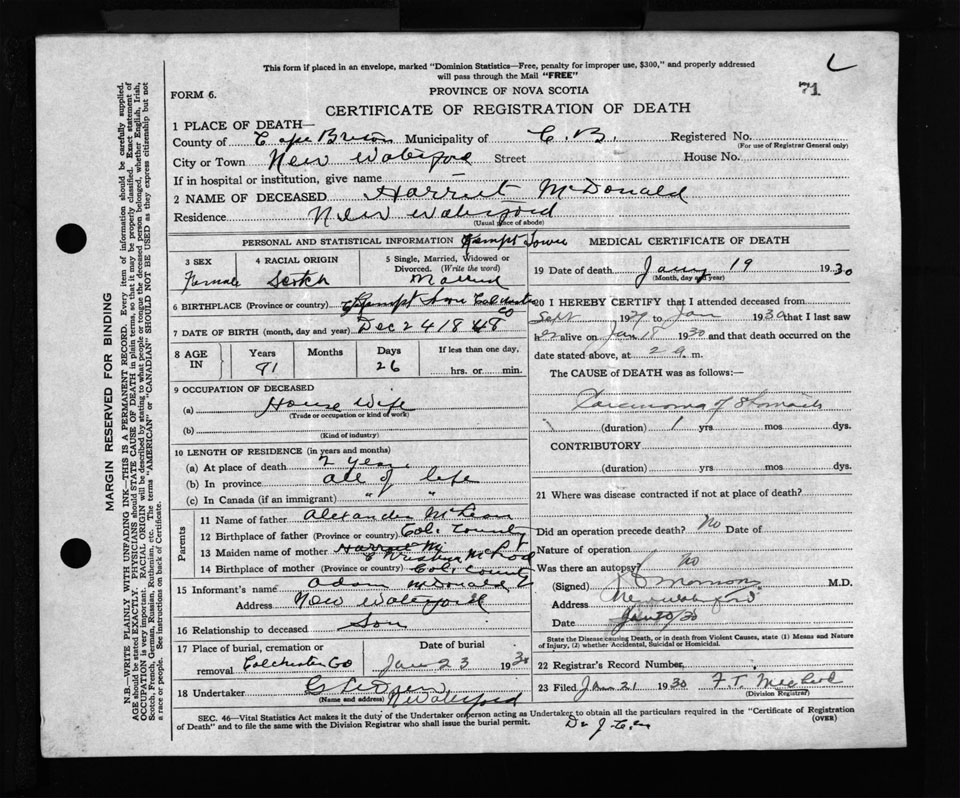 This form if placed in an envelope, marked "Dominion Statistics—Free, penalty for improper use, $300," and properly addressed
will pass through the Mail "FREE"
FORM 6.
PROVINCE OF NOVA SCOTIA
71
CERTIFICATE OF REGISTRATION OF DEATH
1 PLACE OF DEATH—
County of Cape Breton Municipality of C. B. Registered No.
(For use of Registrar General only)
City or Town New Waterford Street House No.
If in hospital or institution, give name
2 NAME OF DECEASED Harriet McDonald
Residence New Waterford
(Usual place of abode)
PERSONAL AND STATISTICAL INFORMATION Kempt Town
3 SEX Female
4 RACIAL ORIGIN Scotch
5 Single, Married, Widowed or Divorced. (Write the word) Married
6 BIRTHPLACE (Province or country) Kempt Town Colchester Co
7 DATE OF BIRTH (month, day and year) Dec 24 1848
8 AGE IN
Years 91 Months Days 26 If less than one day, hrs. or min.
9 OCCUPATION OF DECEASED
(a) House Wife
(Trade or occupation or kind of work)
(b)
(Kind of industry)
10 LENGTH OF RESIDENCE (in years and months)
(a) At place of death 2 years
(b) In province all of life
(c) In Canada (if an immigrant) " "
Parents
11 Name of father Alexander McLean
12 Birthplace of father (Province or country) Col. County
13 Maiden name of mother McLeod
14 Birthplace of mother (Province or country) Col. County
15 Informant's name Adam McDonald
Address New Waterford
16 Relationship to deceased Son
17 Place of burial, cremation or removal Colchester Co
Date of burial Jan 23 1930
18 Undertaker
(Name and address) N Waterford
MEDICAL CERTIFICATE OF DEATH
19 Date of death Jany 19 1930
(Month, day and year)
20 I HEREBY CERTIFY that I attended deceased from
Sept 1929 to Jan 1930 that I last saw
her alive on Jan 18 1930 and that death occurred on the
date stated above, at 2 a. m.
The CAUSE of DEATH was as follows:—
Carcinoma of Stomach
(duration) 1 yrs mos dys.
CONTRIBUTORY
(duration) yrs mos dys.
21 Where was disease contracted if not at place of death?
Did an operation precede death? No Date of
Nature of operation
Was there an autopsy? No
(Signed) Morrison M.D.
Address New Waterford
Date Jan 20/30
State the Disease causing Death, or in death from Violent Causes, state (1) Means and Nature
of Injury, (2) whether Accidental, Suicidal or Homicidal.
22 Registrar's Record Number
23 Filed Jan 21 1930 F. T. McLeod
(Division Registrar)
SEC. 46—Vital Statistics Act makes it the duty of the Undertaker or person acting as Undertaker to obtain all the particulars required in the "Certificate of Registration
of Death" and to file the same with the Division Registrar who shall issue the burial permit.
(OVER)
MARGIN RESERVED FOR BINDING
N.B.—WRITE PLAINLY, WITH UNFADING INK—THIS IS A PERMANENT RECORD. Every item of information should be carefully supplied.
AGE should be stated EXACTLY. PHYSICIANS should STATE CAUSE OF DEATH in plain terms, so that it may be properly classified. Exact statement of
OCCUPATION is very important. RACIAL ORIGIN will be described by stating to what people or tongue the deceased person belonged, whether English, Irish,
Scotch, French, German, Russian, Ruthenian, etc. The terms "AMERICAN" or "CANADIAN" SHOULD NOT BE USED as they express citizenship but not
a race or people. See instructions on back of Certificate.